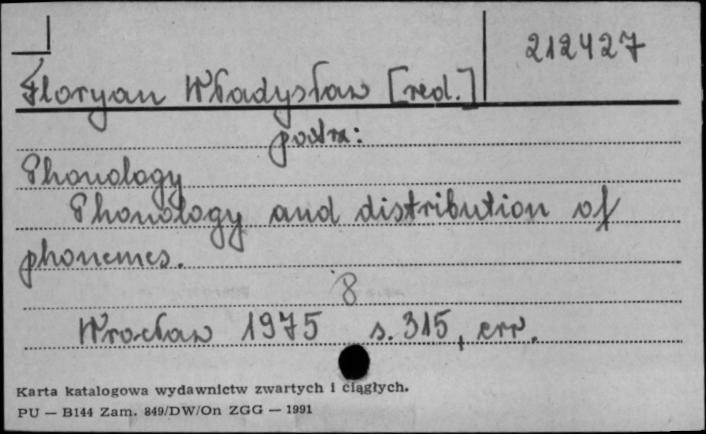 212427
Floryan Władysław [red.]
patrz:
Phonology
Phonology and distribution of
phonemes.
8
Wrocław 1975 s. 315, err.
Karta katalogowa wydawnictw zwartych i ciągłych.
PU — B144 Zam. 849/DW/On ZGG — 1991